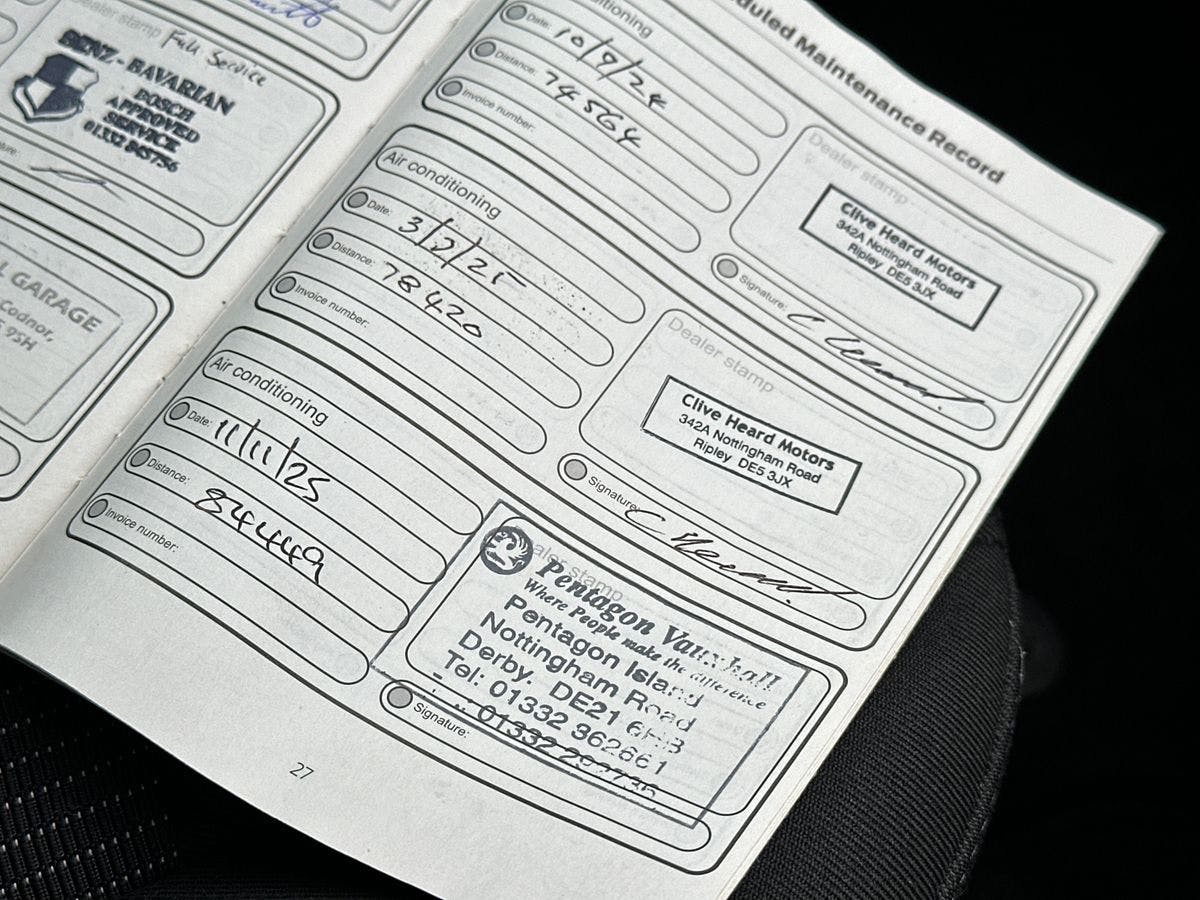 Dealer stamp Full Service
BENZ - BAVARIAN
BOSCH
APPROVED
SERVICE
01332 845756
GARAGE
Codnor,
Scheduled Maintenance Record
Date: 10/9/24
Distance: 74564
Invoice number:
Dealer stamp
Clive Heard Motors
342A Nottingham Road
Ripley DE5 3JX
Signature: C Heard
Air conditioning
Date: 3/2/25
Distance: 78420
Invoice number:
Dealer stamp
Clive Heard Motors
342A Nottingham Road
Ripley DE5 3JX
Signature: C Heard
Air conditioning
Date: 11/11/25
Distance: 84449
Invoice number:
Dealer stamp
Pentagon Vauxhall
Where People make the difference
Pentagon Island
Nottingham Road
Derby. DE21 6HB
Tel: 01332 362661
Signature:
27